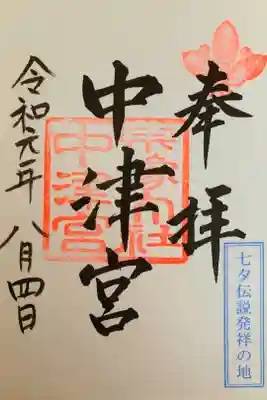 奉拝
中津宮
宗像大社
中津宮
令和元年 八月四日
七夕伝説発祥の地